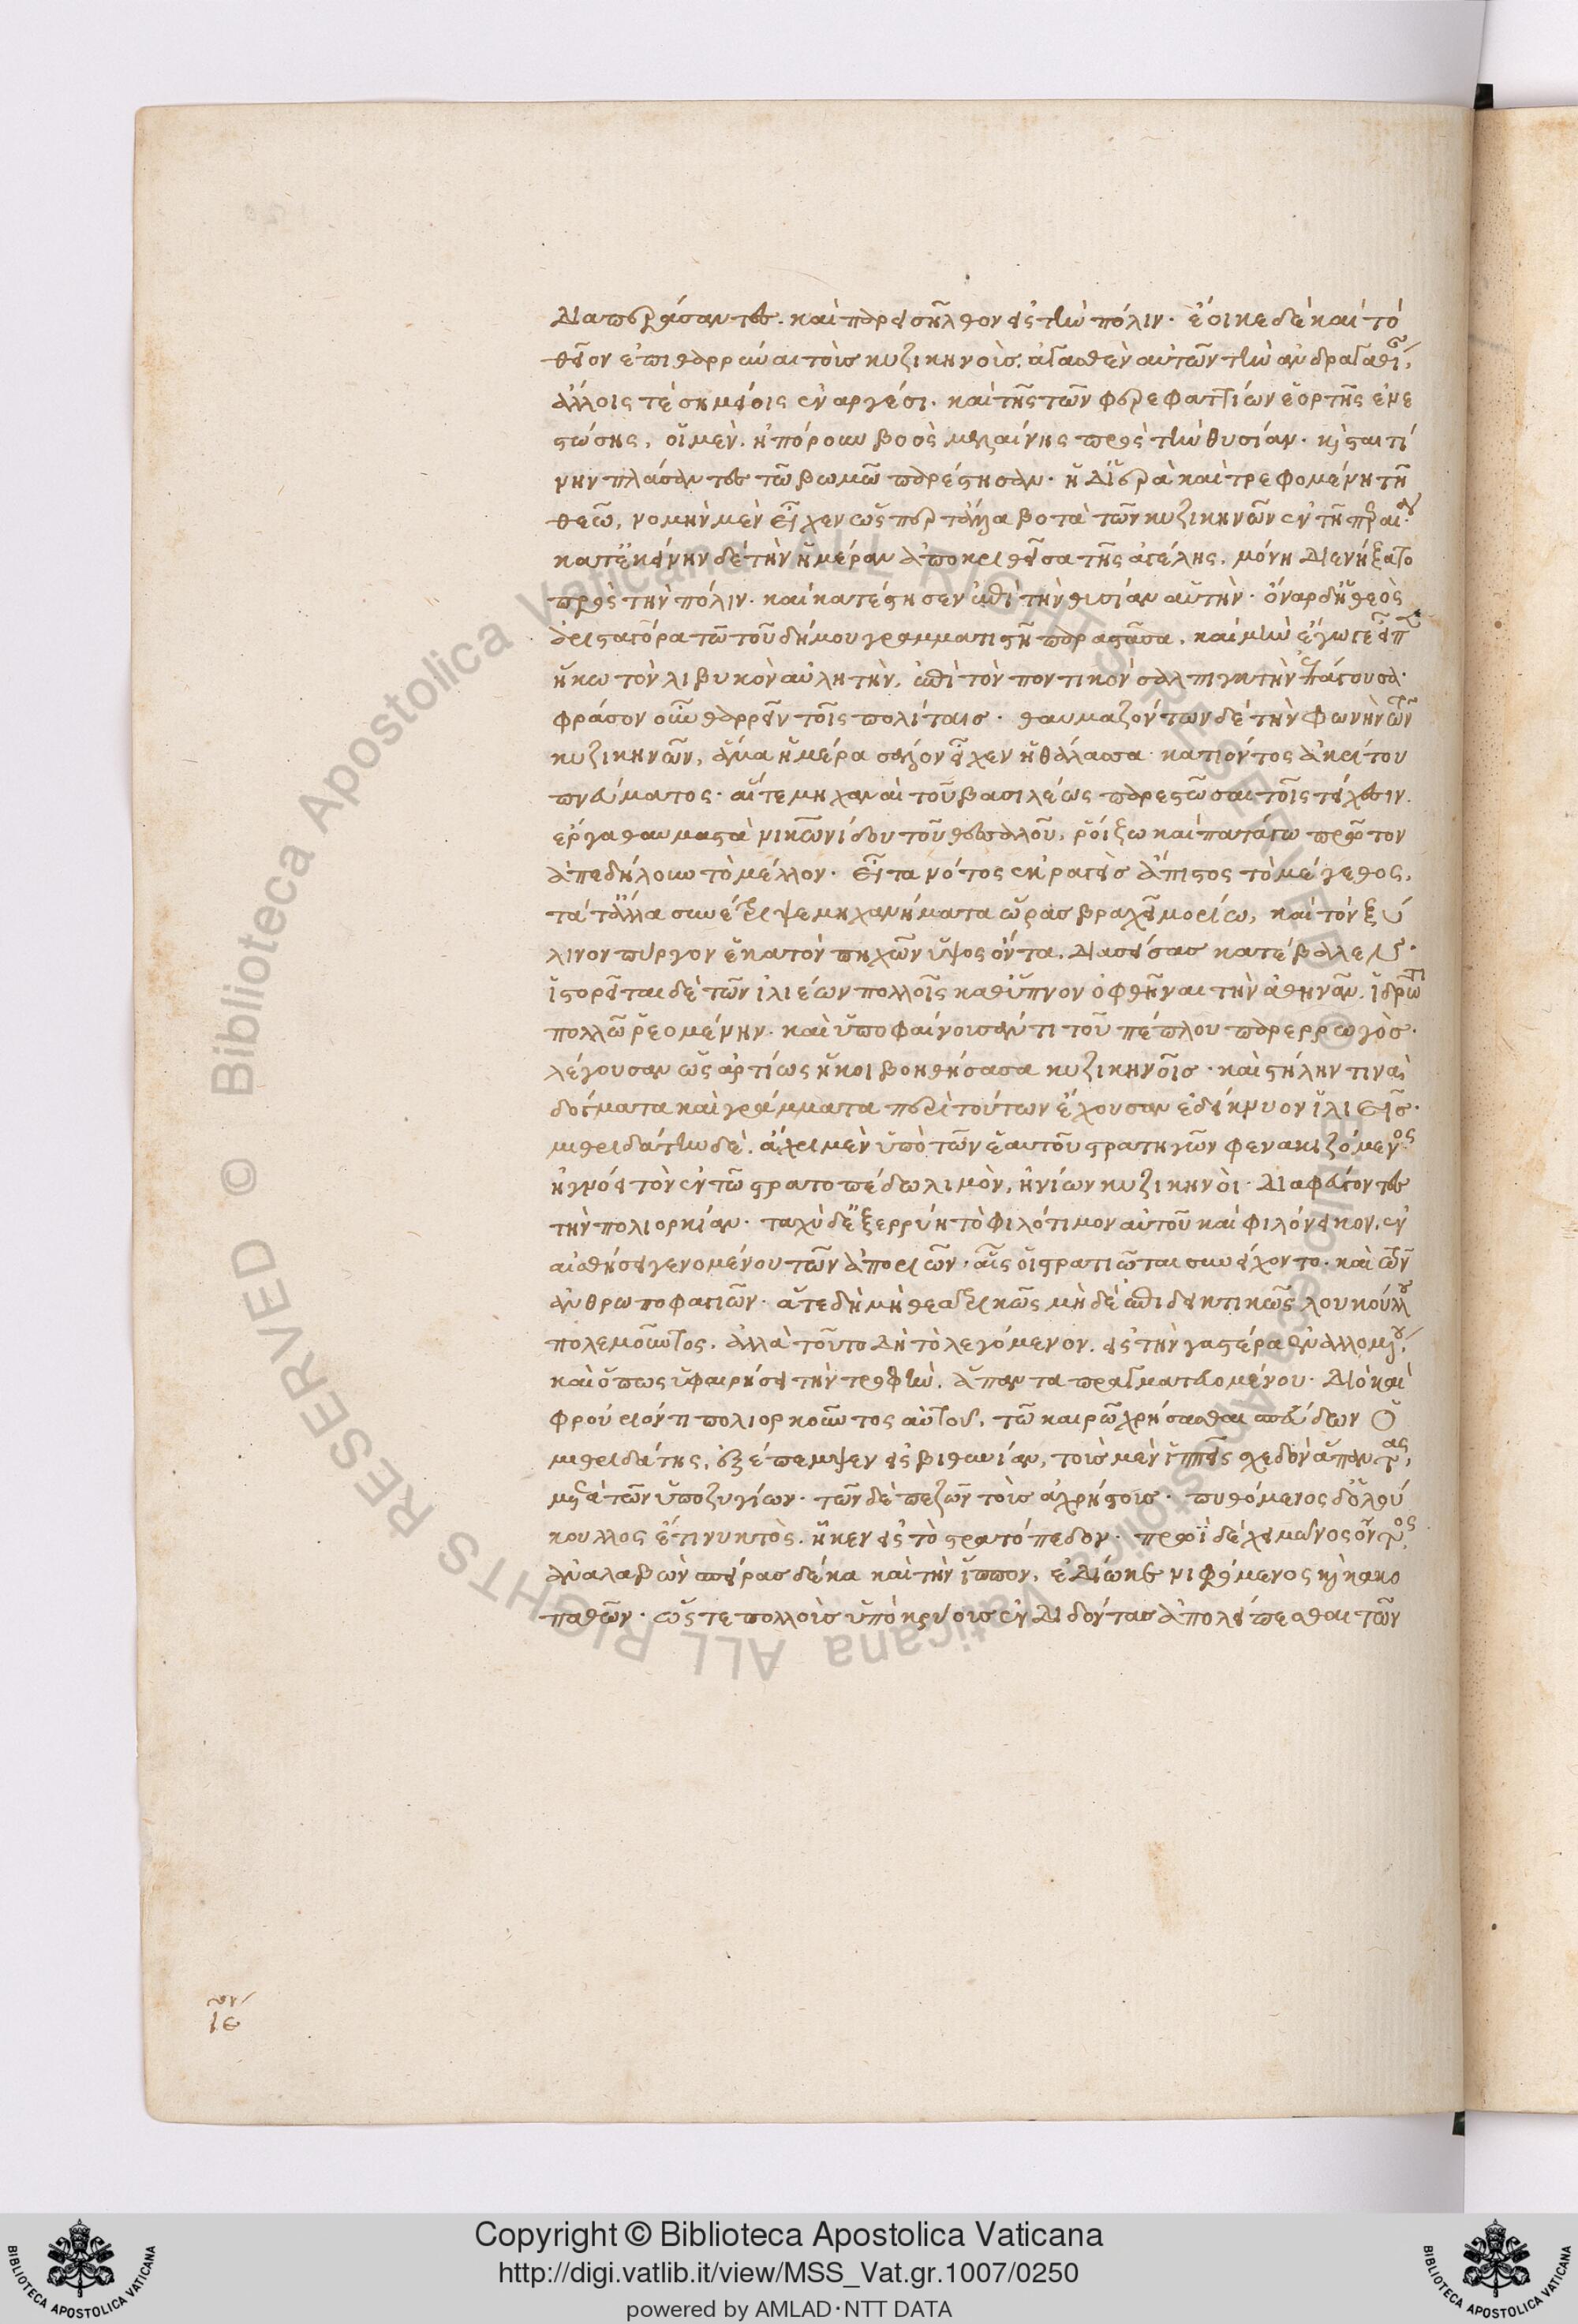 διαπεράσαντες. καὶ παρεισῆλθον εἰς τὴν πόλιν. ἔοικε δὲ καὶ τὸ
θεῖον ἐπιθαρρῦναι τοῖς κυζικηνοῖς. ἀγασθὲν αὐτῶν τὴν ἀνδραγαθίαν,
ἄλλοις τὲ σημείοις ἐναργέσι. καὶ τῆς τῶν φερεφαττίων ἑορτῆς ἐνε
στώσης, οἱ μὲν. ἠπόρουν βοὸς μελαίνης πρὸς τὴν θυσίαν. κ σταιτί
νην πλάσαντες τῶ βωμῶ παρέστησαν. ἡ δ' ἱερὰ καὶ τρεφομένη τῆ
θεῶ, νομὴν μὲν εἶχεν ὡς περ τἄλλα βοτὰ τῶν κυζικηνῶν ἐν τῆ περαία.
κατ' ἐκείνην δὲ τὴν ἡμέραν ἀποκριθεῖσα τῆς ἀγέλης. μόνη διενήξατο
πρὸς τὴν πόλιν. καὶ κατέστησεν ἐπὶ τὴν θυσίαν αὑτὴν. ὄναρ δ' ἡ θεὸς
ἀρισταγόρα τῶ τοῦ δήμου γραμματιστῆ παραστᾶσα. καὶ μὴν ἔγωγε εἶπεν
ἥκω τὸν λιβυκὸν αὐλητὴν. ἐπὶ τὸν ποντικὸν σαλπιγκτὴν ἐπάγουσα.
φράσον οὖν θαρρεῖν τοῖς πολίταις. θαυμαζόντων δὲ τὴν φωνὴν τῶν
κυζικηνῶν, ἅμα ἡμέρα σάλον εἶχεν ἡ θάλασσα κατιόντος ἀκρίτου
πνεύματος. αἵ τε μηχαναὶ τοῦ βασιλέως παρεστῶσαι τοῖς τείχεσιν.
ἔργα θαυμαστὰ νικωνίδου τοῦ θεσσαλοῦ, ῥοίζω καὶ πατάγω πρῶτον
ἀπεδήλουν τὸ μέλλον. εἶτα νότος ἐκραγεὶς ἄπιστος τὸ μέγεθος,
τά τ' ἄλλα συνέτριψε μηχανήματα ὥρας βραχεῖ μορίω, καὶ τὸν ξύ
λινον πύργον ἑκατὸν πηχῶν ὕψος ὄντα. διασείσας κατέβαλλε.
ἱστορεῖται δὲ τῶν ἰλιέων πολλοῖς καθ' ὕπνον ὀφθῆναι τὴν ἀθηνᾶν. ἱδρῶτι
πολλῶ ῥεομένην. καὶ ὑποφαίνουσάν τι τοῦ πέπλου παρερρωγὸς.
λέγουσαν ὡς ἀρτίως ἥκοι βοηθήσασα κυζικηνοῖς. καὶ στήλην τινὰ
δόγματα καὶ γράμματα περὶ τούτων ἔχουσαν ἐδείκνυον ἰλιεῖς.
μιθριδάτην δὲ. ἄχρι μὲν ὑπὸ τῶν ἑαυτοῦ στρατηγῶν φενακιζόμενος
ἠγνόει τὸν ἐν τῶ στρατοπέδω λιμὸν, ἠνίων κυζικηνὸι. διαφεύγοντες
τὴν πολιορκίαν. ταχὺ δ' ἐξερρύη τὸ φιλότιμον αὐτοῦ καὶ φιλόνεικον. ἐν
αἰσθήσει γενομένου τῶν ἀποριῶν. αἷς οἱ στρατιῶται συνείχοντο. καὶ τῶν
ἀνθρωποφαγιῶν. ἅτε δὴ μὴ θεατρικῶς μὴ δὲ ἐπιδεικτικῶς λουκούλλου
πολεμοῦντος. ἀλλὰ τοῦτο δὴ τὸ λεγόμενον. εἰς τὴν γαστέρα ἐναλλομένου,
καὶ ὅπως ὑφαιρήσει τὴν τροφὴν. ἅπαντα πραγματευομένου. διὸ καὶ
φρούριόν τι πολιορκοῦντος αὐτοῦ. τῶ καιρῶ χρήσασθαι σπεύδων ὁ
μιθριδάτης. ἐξέπεμψεν εἰς βιθυνίαν, τοὺς μὲν ἱππεῖς σχεδὸν ἅπαντας,
μετὰ τῶν ὑποζυγίων. τῶν δὲ πεζῶν τοὺς ἀχρήστους. πυθόμενος δ' ὁ λού
κουλλος ἔτι νυκτὸς. ἧκεν εἰς τὸ στρατόπεδον. πρωῒ δὲ χειμῶνος ὄντος.
ἀναλαβὼν σπείρας δέκα καὶ τὴν ἵππον, ἐδίωκε νιφόμενος κ κακο
παθῶν. ὥς τε πολλοὺς ὑπὸ κρύους ἐνδιδόντας ἀπολείπεσθαι τῶν
ιε
Copyright © Biblioteca Apostolica Vaticana
http://digi.vatlib.it/view/MSS_Vat.gr.1007/0250
powered by AMLAD·NTT DATA